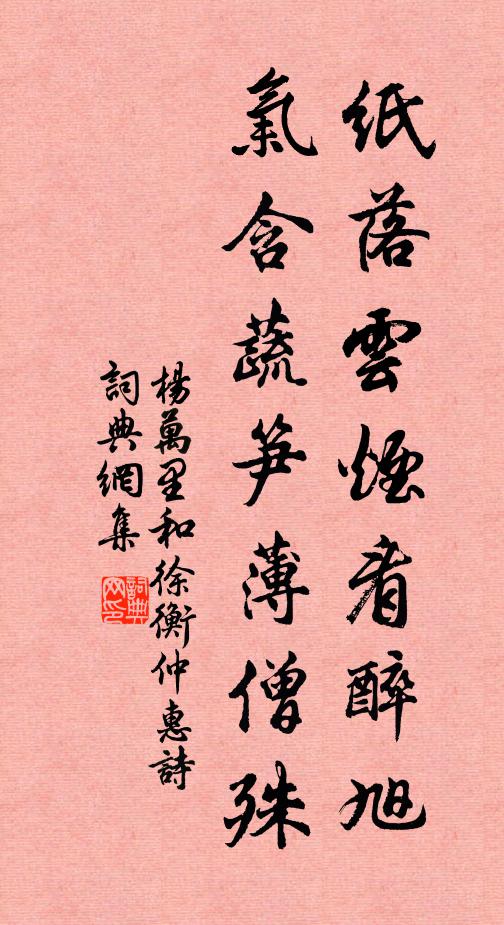 紙落雲煙看醉旭
氣含蔬笋薄僧殊
楊萬里和徐衡仲惠詩
詞典網集
詞典网印